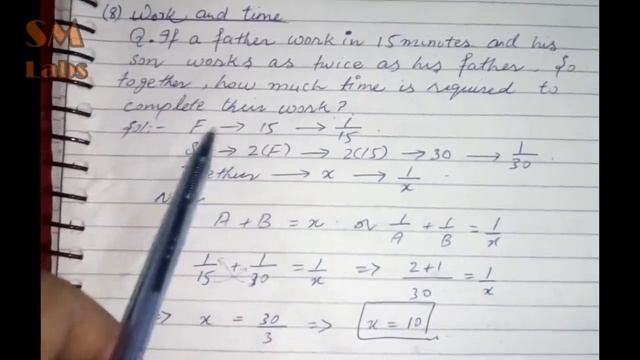 SM
Labs
(8) Work and time
Q. If a father work in 15 minutes and his
son works as twice as his father. So
together, how much time is required to
complete their work?
Sol:- F → 15 → 1/15
→ 2(F) → 2(15) → 30 → 1/30
→ x → 1/x
A + B = x or 1/A + 1/B = 1/x
1/15 + 1/30 = 1/x => 2+1/30 = 1/x
=> x = 30/3 => x = 10